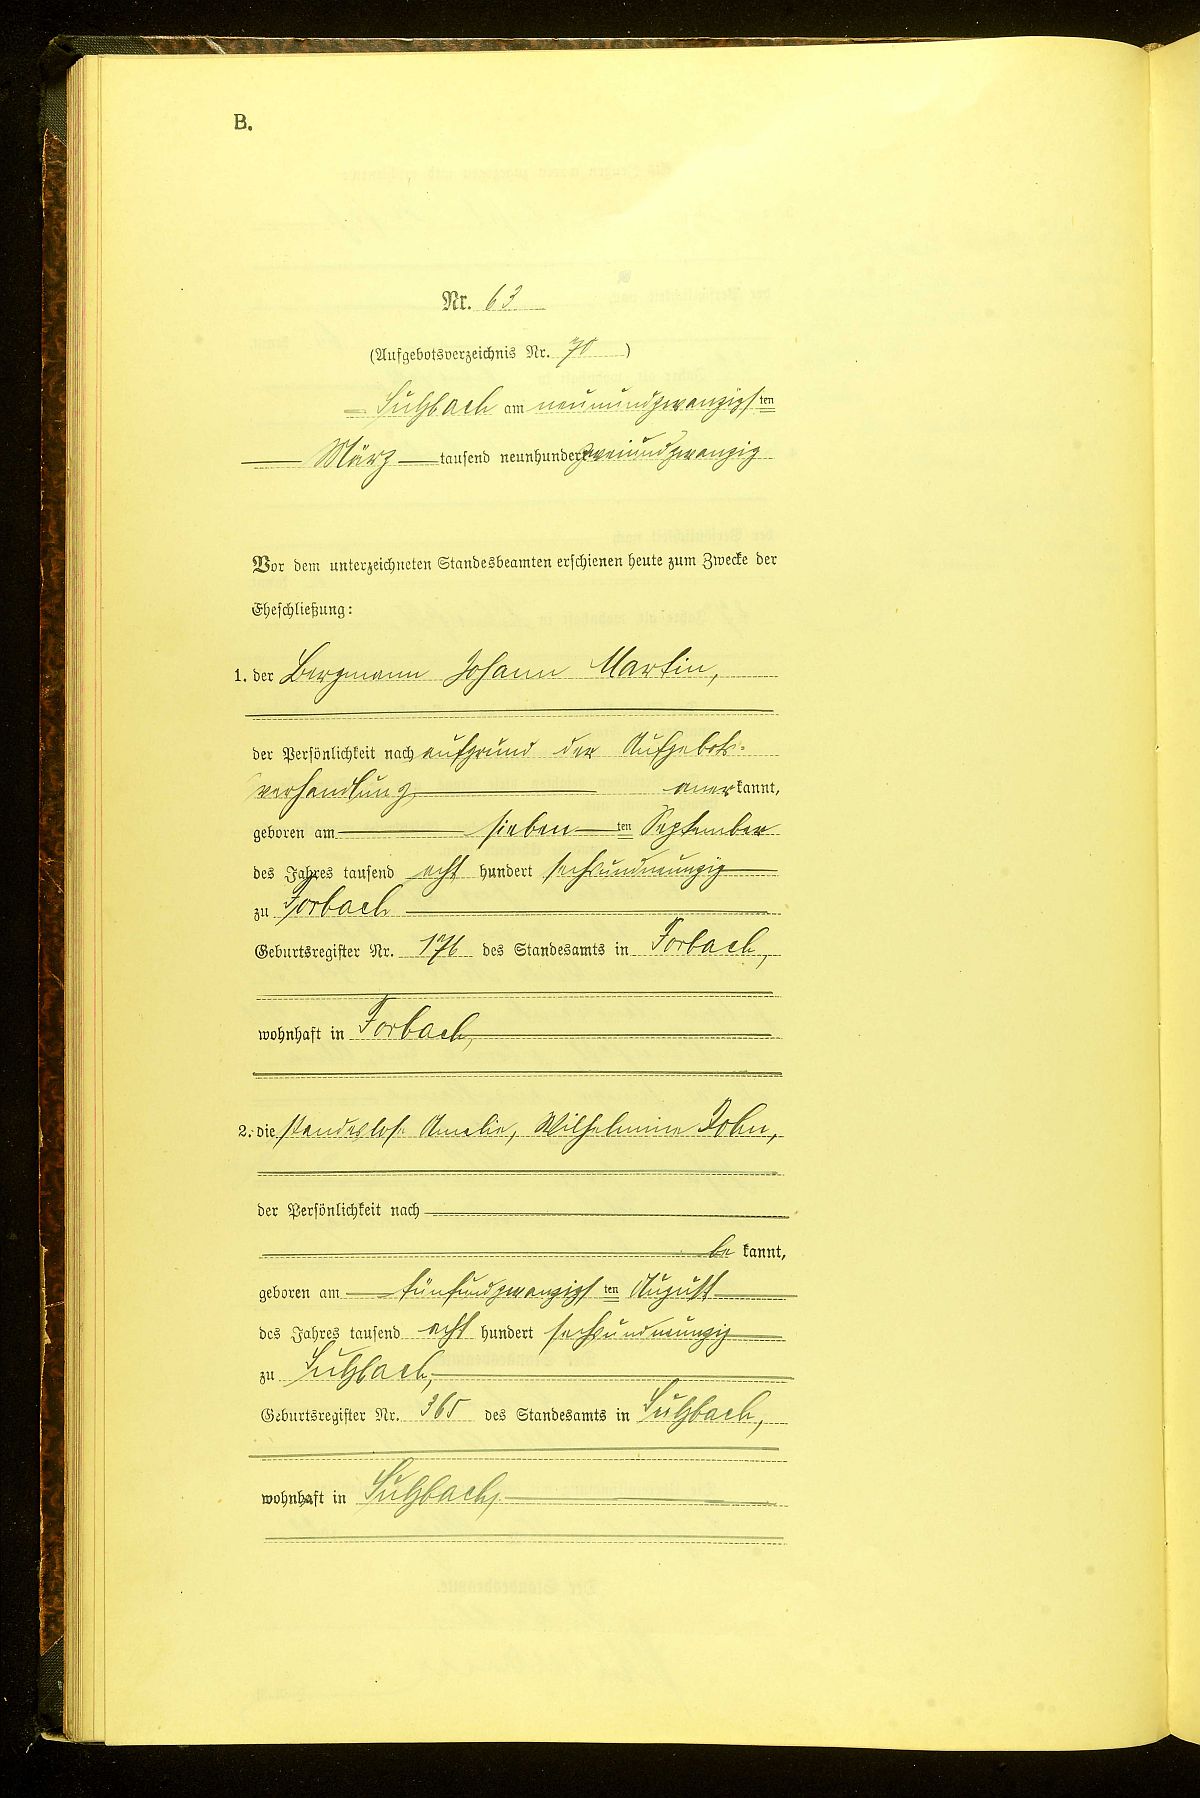 B.
Nr. 63
(Aufgebotsverzeichnis Nr. 70)
Sulzbach am neunundzwanzigsten
März tausend neunhundert zweiundzwanzig
Vor dem unterzeichneten Standesbeamten erschienen heute zum Zwecke der
Eheschließung:
1. der Bergmann Johann Martin,
der Persönlichkeit nach aufgrund der Aufgebots-
verhandlung anerkannt,
geboren am siebenten September
des Jahres tausend acht hundert sechsundneunzig
zu Forbach
Geburtsregister Nr. 176 des Standesamts in Forbach,
wohnhaft in Forbach,
2. die standeslose Amalie, Wilhelmine John,
der Persönlichkeit nach
bekannt,
geboren am fünfundzwanzigsten August
des Jahres tausend acht hundert sechsundneunzig
zu Sulzbach,
Geburtsregister Nr. 365 des Standesamts in Sulzbach,
wohnhaft in Sulzbach,